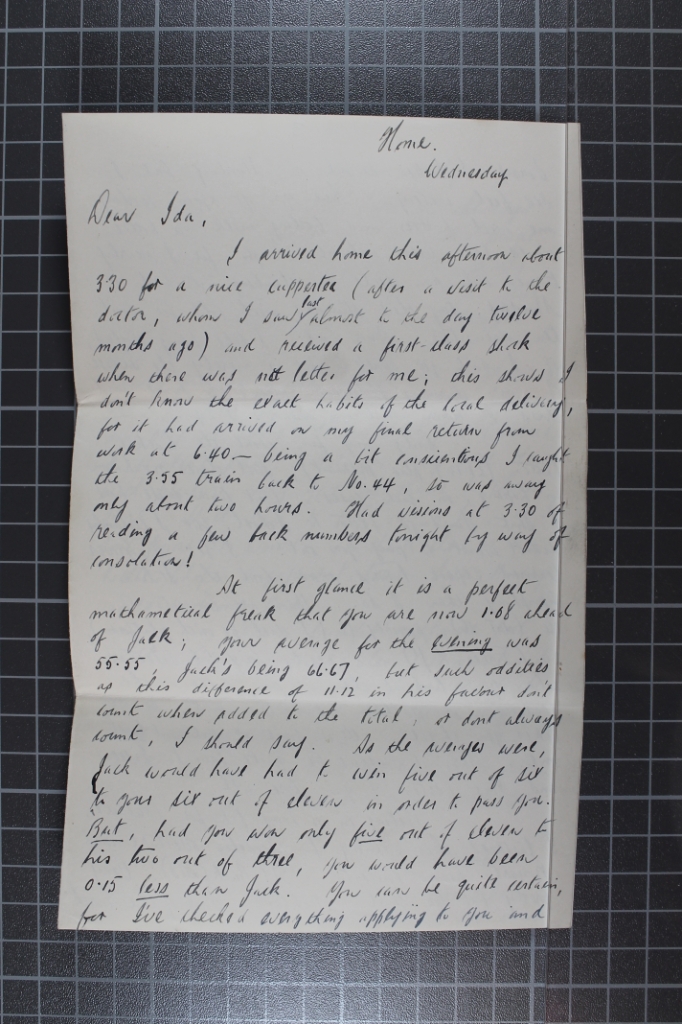 Home.
Wednesday
Dear Ida,
I arrived home this afternoon about
3.30 for a nice cuppertea (after a visit to the
doctor, whom I saw last almost to the day twelve
months ago) and received a first-class shock
when there was not letter for me; this shows I
don't know the exact habits of the local delivery,
for it had arrived on my final return from
work at 6.40 — being a bit conscientious I caught
the 3.55 train back to No. 44, so was away
only about two hours. Had visions at 3.30 of
reading a few back numbers tonight by way of
consolation!
At first glance it is a perfect
mathametical freak that you are now 1.08 ahead
of Jack; your average for the evening was
55.55, Jack's being 66.67, but such oddities
as this difference of 11.12 in his favour don't
count when added to the total, or dont always
count, I should say. As the averages were,
Jack would have had to win five out of six
to your six out of eleven in order to pass you.
But, had you won only five out of eleven to
his two out of three, you would have been
0.15 less than Jack. You can be quite certain,
for I've checked everything applying to you and